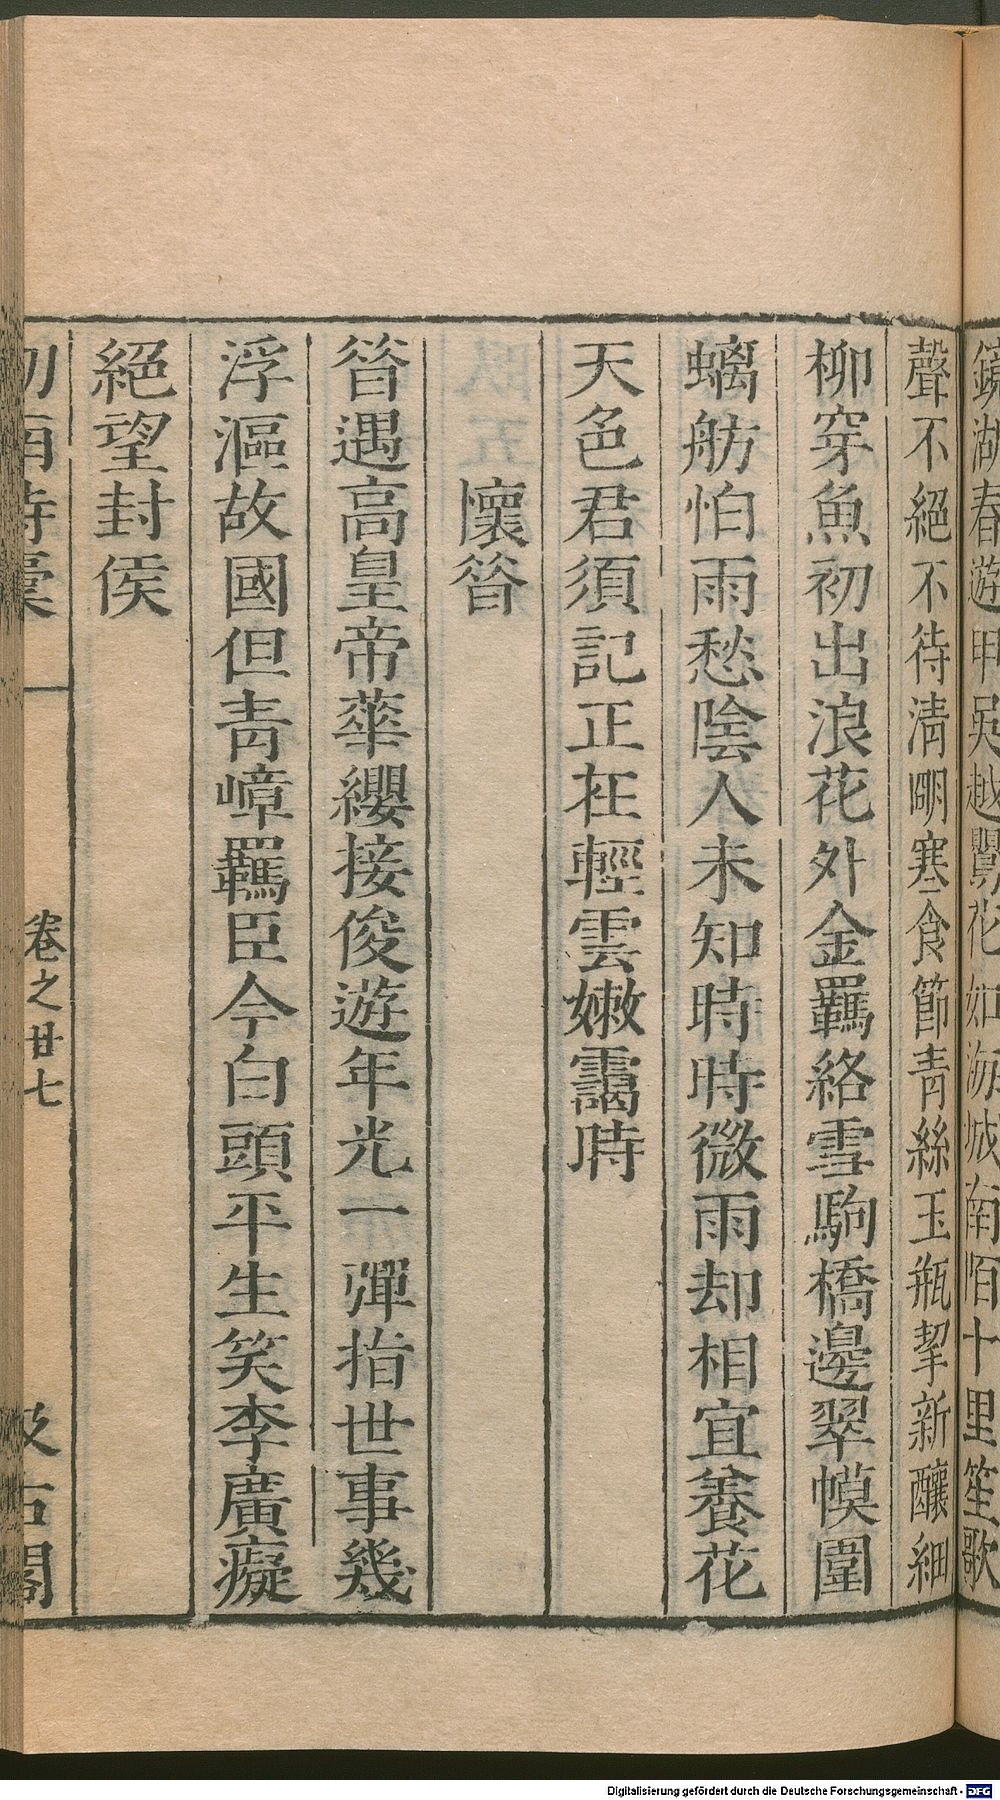 鏡湖春遊甲吳越鸎花如海城南陌十里笙歌
聲不絕不待淸明寒食節靑絲玉瓶挈新釀細
柳穿魚初出浪花外金羈絡雪駒橋邊翠幙圍
螭舫怕雨愁陰人未知時時微雨却相宜養花
天色君須記正在輕雲嫩靄時
懷昝
昝遇高皇帝華纓接俊遊年光一彈指世事幾
浮漚故國但靑嶂羈臣今白頭平生笑李廣癡
絕望封侯
卷之廿七
汲古閣
Digitalisierung gefördert durch die Deutsche Forschungsgemeinschaft - DFG